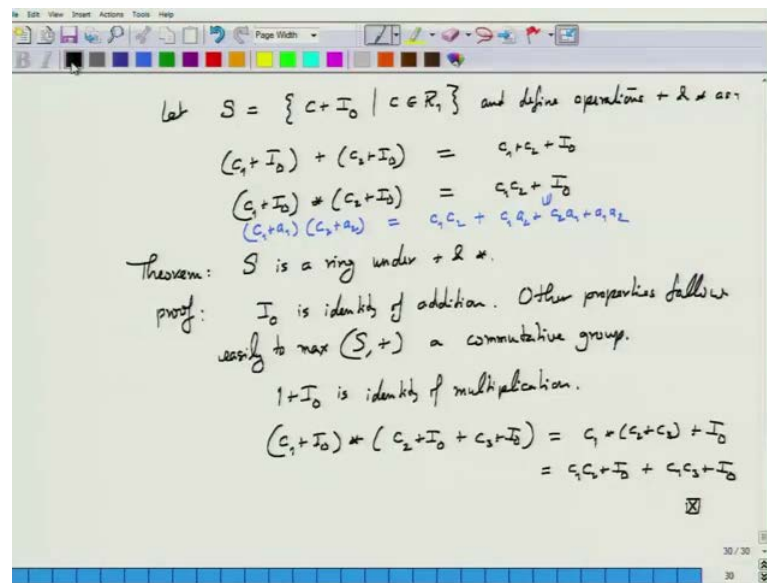 Edit View Insert Actions Tools Help
Page Width
B I
Let S = { c + I₀ | c ∈ R₁ } and define operations + & * as:
(c₁ + I₀) + (c₂ + I₀) = c₁ + c₂ + I₀
(c₁ + I₀) * (c₂ + I₀) = c₁c₂ + I₀
(c₁ + a₁) (c₂ + a₂) = c₁c₂ + c₁a₂ + c₂a₁ + a₁a₂
Theorem: S is a ring under + & *.
proof: I₀ is identity of addition. Other properties follow
easily to max (S, +) a commutative group.
1 + I₀ is identity of multiplication.
(c₁ + I₀) * ( c₂ + I₀ + c₃ + I₀) = c₁ * (c₂ + c₃) + I₀
= c₁c₂ + I₀ + c₁c₃ + I₀
30 / 30
30